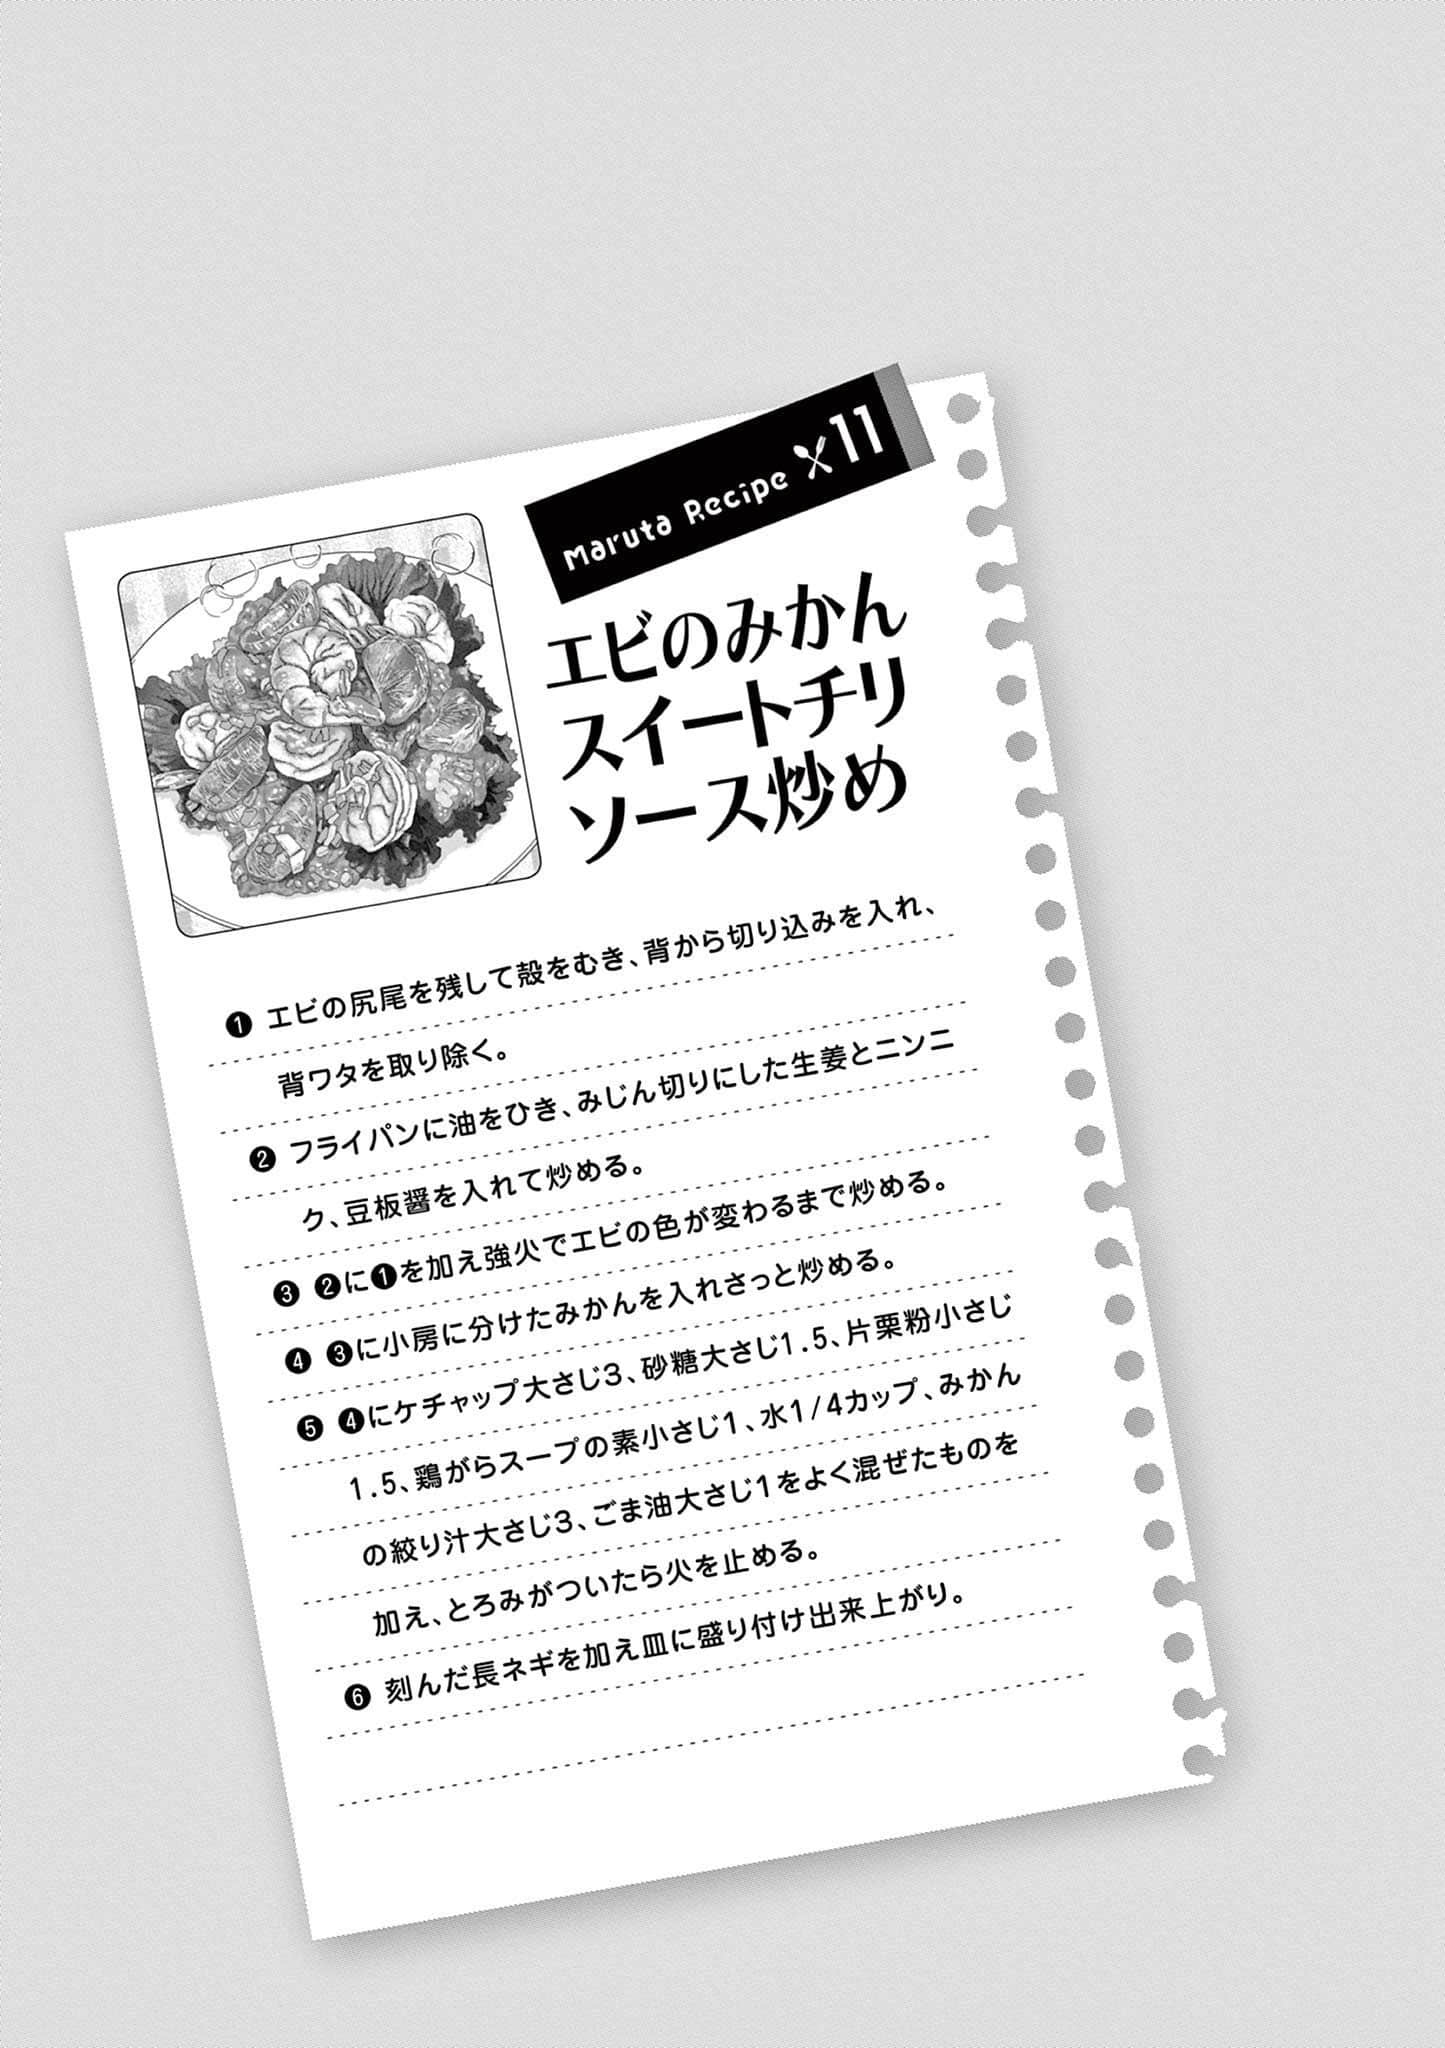 Maruta Recipe 11
エビのみかん
スイートチリ
ソース炒め
❶ エビの尻尾を残して殻をむき、背から切り込みを入れ、
背ワタを取り除く。
❷ フライパンに油をひき、みじん切りにした生姜とニンニ
ク、豆板醤を入れて炒める。
❸ ❷に❶を加え強火でエビの色が変わるまで炒める。
❹ ❸に小房に分けたみかんを入れさっと炒める。
❺ ❹にケチャップ大さじ3、砂糖大さじ1.5、片栗粉小さじ
1.5、鶏がらスープの素小さじ1、水1/4カップ、みかん
の絞り汁大さじ3、ごま油大さじ1をよく混ぜたものを
加え、とろみがついたら火を止める。
❻ 刻んだ長ネギを加え皿に盛り付け出来上がり。